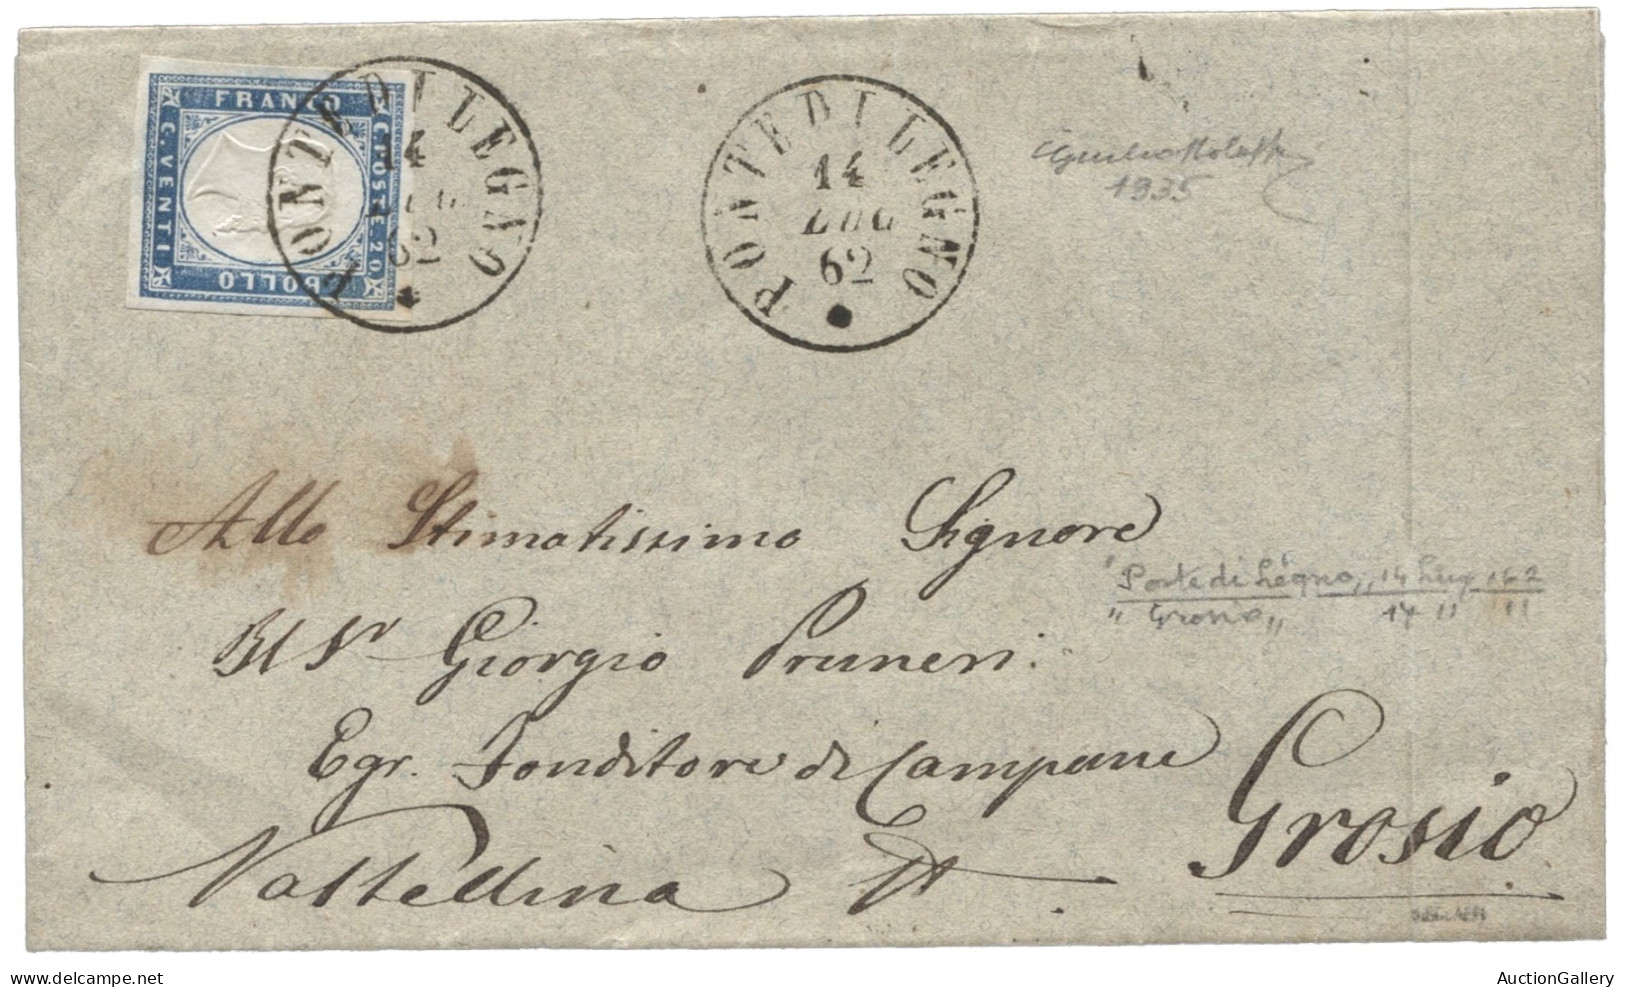 FRANCO
C. POSTE. 20
BOLLO
C. VENTI
PONTE DI LEGNO
14
LUG
62
PONTE DI LEGNO
14
LUG
62
1935
Allo Stimatissimo Signore
Il Sr Giorgio Pruneri.
Egr. Fonditore di Campane
Valtellina
Grosio
"Ponte di Legno" 14 Lug 162
"Grosio" 17 " "
AuctionGallery